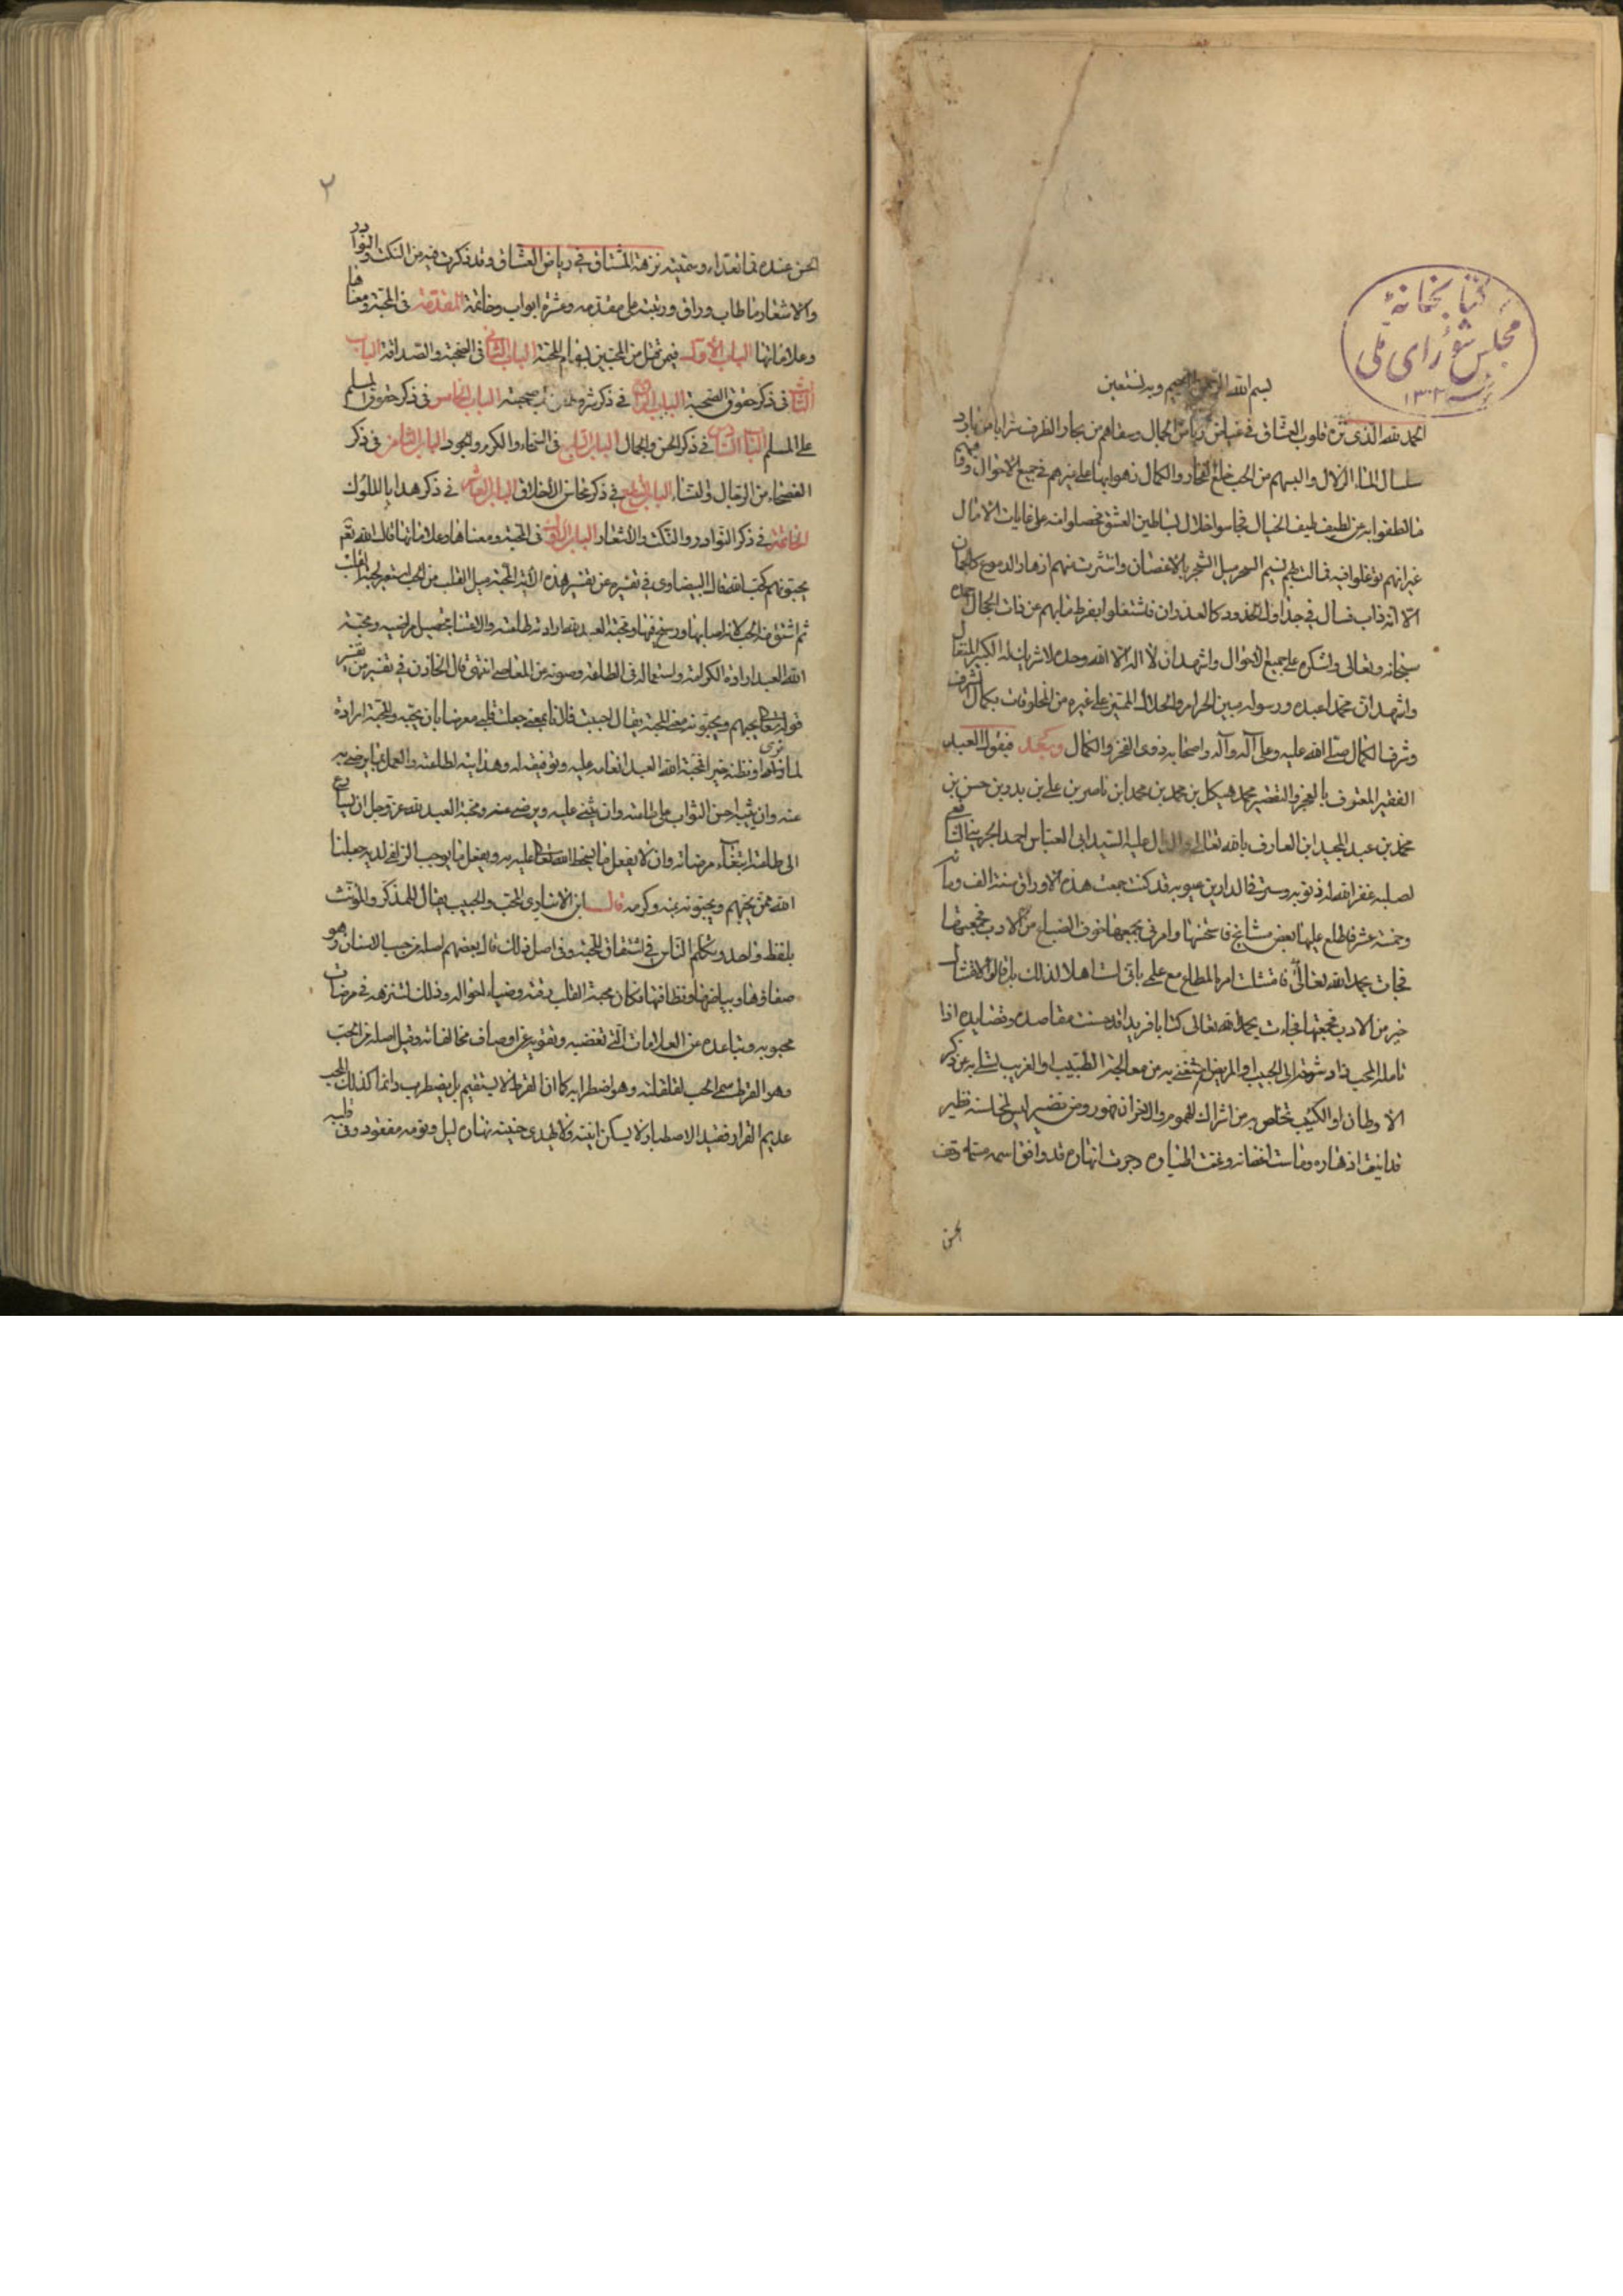 كتابخانهٔ
مجلس شورای ملی
١٣٠٢
بسم الله الرحمن الرحيم وبه نستعين
الحمد لله الذي نزه قلوب العشاق في رياض الجمال وسقاهم من بحار الظرف شرابا
سلسال الماء الزلال والبسهم من الحب خلع الفخار والكمال في جميع الاحوال
من لطيف طيف الخيال فجاسوا خلال بساطين العشق فحصلوا منه على غايات الامال
غير انهم توغلوا فيه فمالت بهم نسيم السحر ميل الشجر بالاغصان وانتثرت منهم ازهار الدموع كالجمان
الا انه ذاب فسال في جداول الخدود كالغدران فاشتغلوا بفرط ما بهم عن ذات الجمال
سبحانه وتعالى واشكره على جميع الاحوال واشهد ان لا اله الا الله وحده لا شريك له الكبير المتعال
واشهد ان محمدا عبده ورسوله مبين الحرام والحلال المتميز على غيره من المخلوقات بكمال الشرف
وشرف الكمال صلى الله عليه وعلى آله واصحابه ذوى الفخر والكمال وبعد فيقول العبد
الفقير المعترف بالعجز والتقصير محمد هيكل بن محمد بن محمد ابن ناصر بن على بن بدر بن حسن بن
محمد بن عبد المجيد ابن العارف بالله تعالى السيد ابى العباس احمد الشافعي
غفر الله له ذنوبه وستر في الدارين عيوبه قد كنت جمعت هذه الاوراق سنة الف ومائة
وخمسة عشر فاطلع عليها بعض مشائخي فاستحسنها وامرني بجمعها خوف الضياع
فجات بحمد الله تعالى فامتثلت امره المطاع مع علمي باني لست اهلا لذلك
خير من الادب فجمعتها فجاءت بحمد الله تعالى كتابا فريدا قد حسنت مقاصده اذا
تامله المحب زاد شوقه الى الحبيب او المريض استغنى به عن معالجة الطبيب او الغريب تسلى به عن ذكر
الاوطان او الكئيب تخلص به من اشراك الهموم والاحزان فهو روض نضير ليس لمجالسته نظير
قد اينعت ازهاره وماست اغصانه وغنت اطياره وجرت انهاره قد وافق اسمه مسماه
الحسن
٢
الحسن عنده وسميته نزهة المشتاق في رياض العشاق وقد ذكرت فيه من النكت والنوادر
والاشعار ما طاب وراق ورتبته على مقدمه وعشرة ابواب وخاتمة المقدمة في المحبة ومعناها
وعلاماتها الباب الاول فيمن قتل من المحبين بسهام المحبة الباب الثاني في الصحبة والصداقة الباب
الثالث في ذكر حقوق الصحبة الباب الرابع في ذكر شروط من صحبته الباب الخامس في ذكر حقوق المسلم
على المسلم الباب السادس في ذكر الحسن والجمال الباب السابع في السخاء والكرم والجود الباب الثامن في ذكر
الفصحاء من الرجال والنساء الباب التاسع في ذكر محاسن الاخلاق الباب العاشر في ذكر هدايا الملوك
الخاتمة في ذكر النوادر والنكت والاشعار الباب الاول في المحبة ومعناها وعلاماتها قال الله تعم
يحبونهم كحب الله قال البيضاوي في تفسيره عن تفسير هذه الآية المحبة ميل القلب من الحب استعير لحبة القلب
ثم اشتق منه الحب لانه اصابها ورسخ فيها ومحبة العبد لله تعالى ارادة طاعته والاعتناء بتحصيل مراضيه ومحبة
الله للعبد ارادة اكرامه واستعماله في الطاعة وصونه عن المعاصي انتهى قال الخازن في تفسيره من تفسير
قوله تعالى يحبهم ويحبونه معنى المحبة يقال احببت فلانا بمعنى جعلت قلبي معرضا بان يحبه والمحبة ارادة
ما تراه او تظنه خيرا فمحبة الله العبد انعامه عليه وتوفيقه له وهدايته لطاعته والعمل بما يرضى به
عنه وان يثيبه احسن الثواب على طاعته وان يثني عليه ويرضى عنه ومحبة العبد لله عز وجل ان يسارع
الى طاعته ابتغاء مرضاته وان لا يفعل ما يوجب سخط الله تعالى عليه وما يوجب الزلفى لديه جعلنا
الله ممن يحبهم ويحبونه بمنه وكرمه قال ابن الانباري المحب والحبيب يقال للمذكر والمؤنث
بلفظ واحد وتكلم الناس في اشتقاق المحبة وفي اصل ذلك قال بعضهم اصله من حبب الاسنان وهو
صفاؤها وبياضها ونظافتها فكان محبة القلب رقته وضياء احواله وذلك لتنزهه في مرضات
محبوبه وتباعده عن العلامات التي تغضبه وتقربه من اوصاف مخالفاته وقيل اصله من الحب
وهو القرط سمي الحب لقلقلته وهو اضطرابه كما ان القرط لا يستقيم بل يضطرب دائما كذلك المحب
عديم القرار فقيد الاصطبار لا يسكن انينه ولا يهدى حنينه نهاره ليل ونومه مفقود وفي قلبه